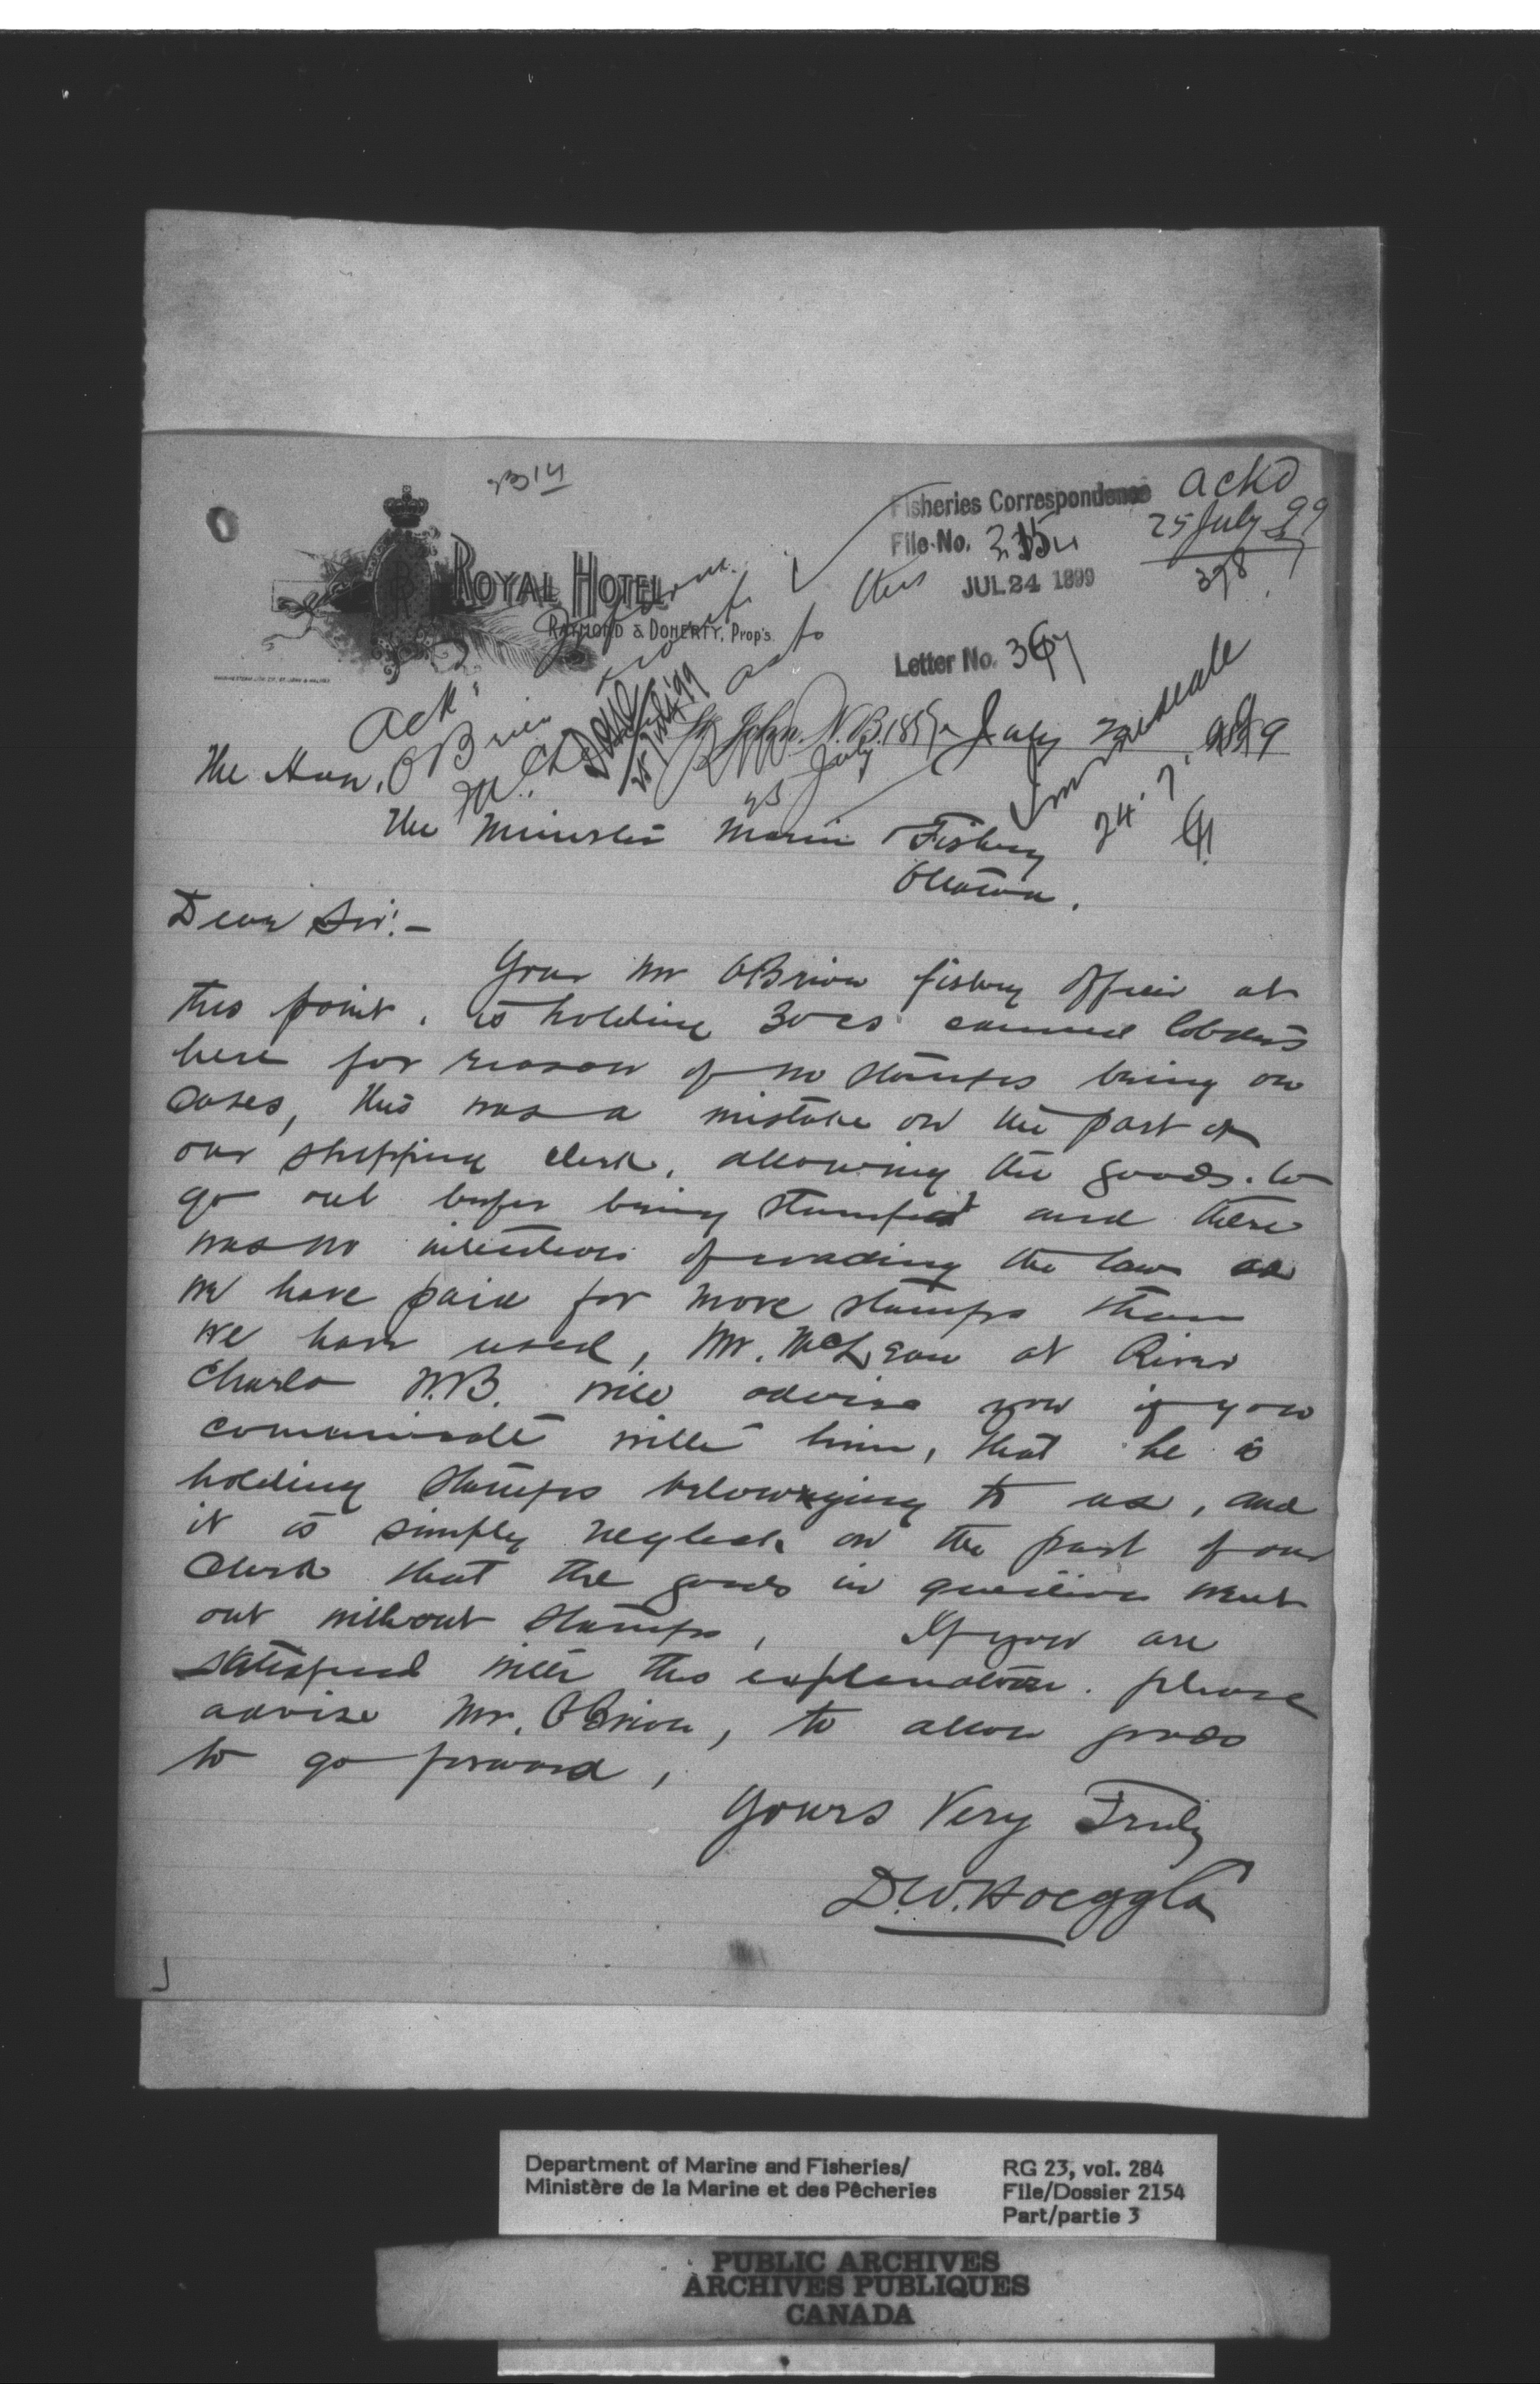 Fisheries Correspondence
ackd
File No.
25 July 99
398
JUL 24 1899
ROYAL HOTEL
RAYMOND & DOHERTY, Prop's.
Letter No. 367
as to this
ack
O'Brien
immediate
St. John, N.B. 189 July 1899
24.7.99
The Hon.
The Minister Marine Fishery
Ottawa.
Dear Sir:-
Your Mr O'Brien fishery officer at
this point, is holding 30 cs canned lobsters
here for reason of no stamps being on
cases, this was a mistake on the part of
our shipping clerk, allowing the goods to
go out before being stamped and there
was no intentions of evading the law as
we have paid for more stamps than
we have used, Mr. at River
Charlo N.B. will advise you if you
with him, that he is
holding stamps belonging to us, and
it is simply neglect on the part of our
Clerk that the goods in question went
out without stamps, If you are
satisfied with this explanation. please
advise Mr. O'Brien, to allow goods
to go forward,
Yours Very Truly
D.W. Hoegg
Department of Marine and Fisheries/
Ministère de la Marine et des Pêcheries
RG 23, vol. 284
File/Dossier 2154
Part/partie 3
PUBLIC ARCHIVES
ARCHIVES PUBLIQUES
CANADA